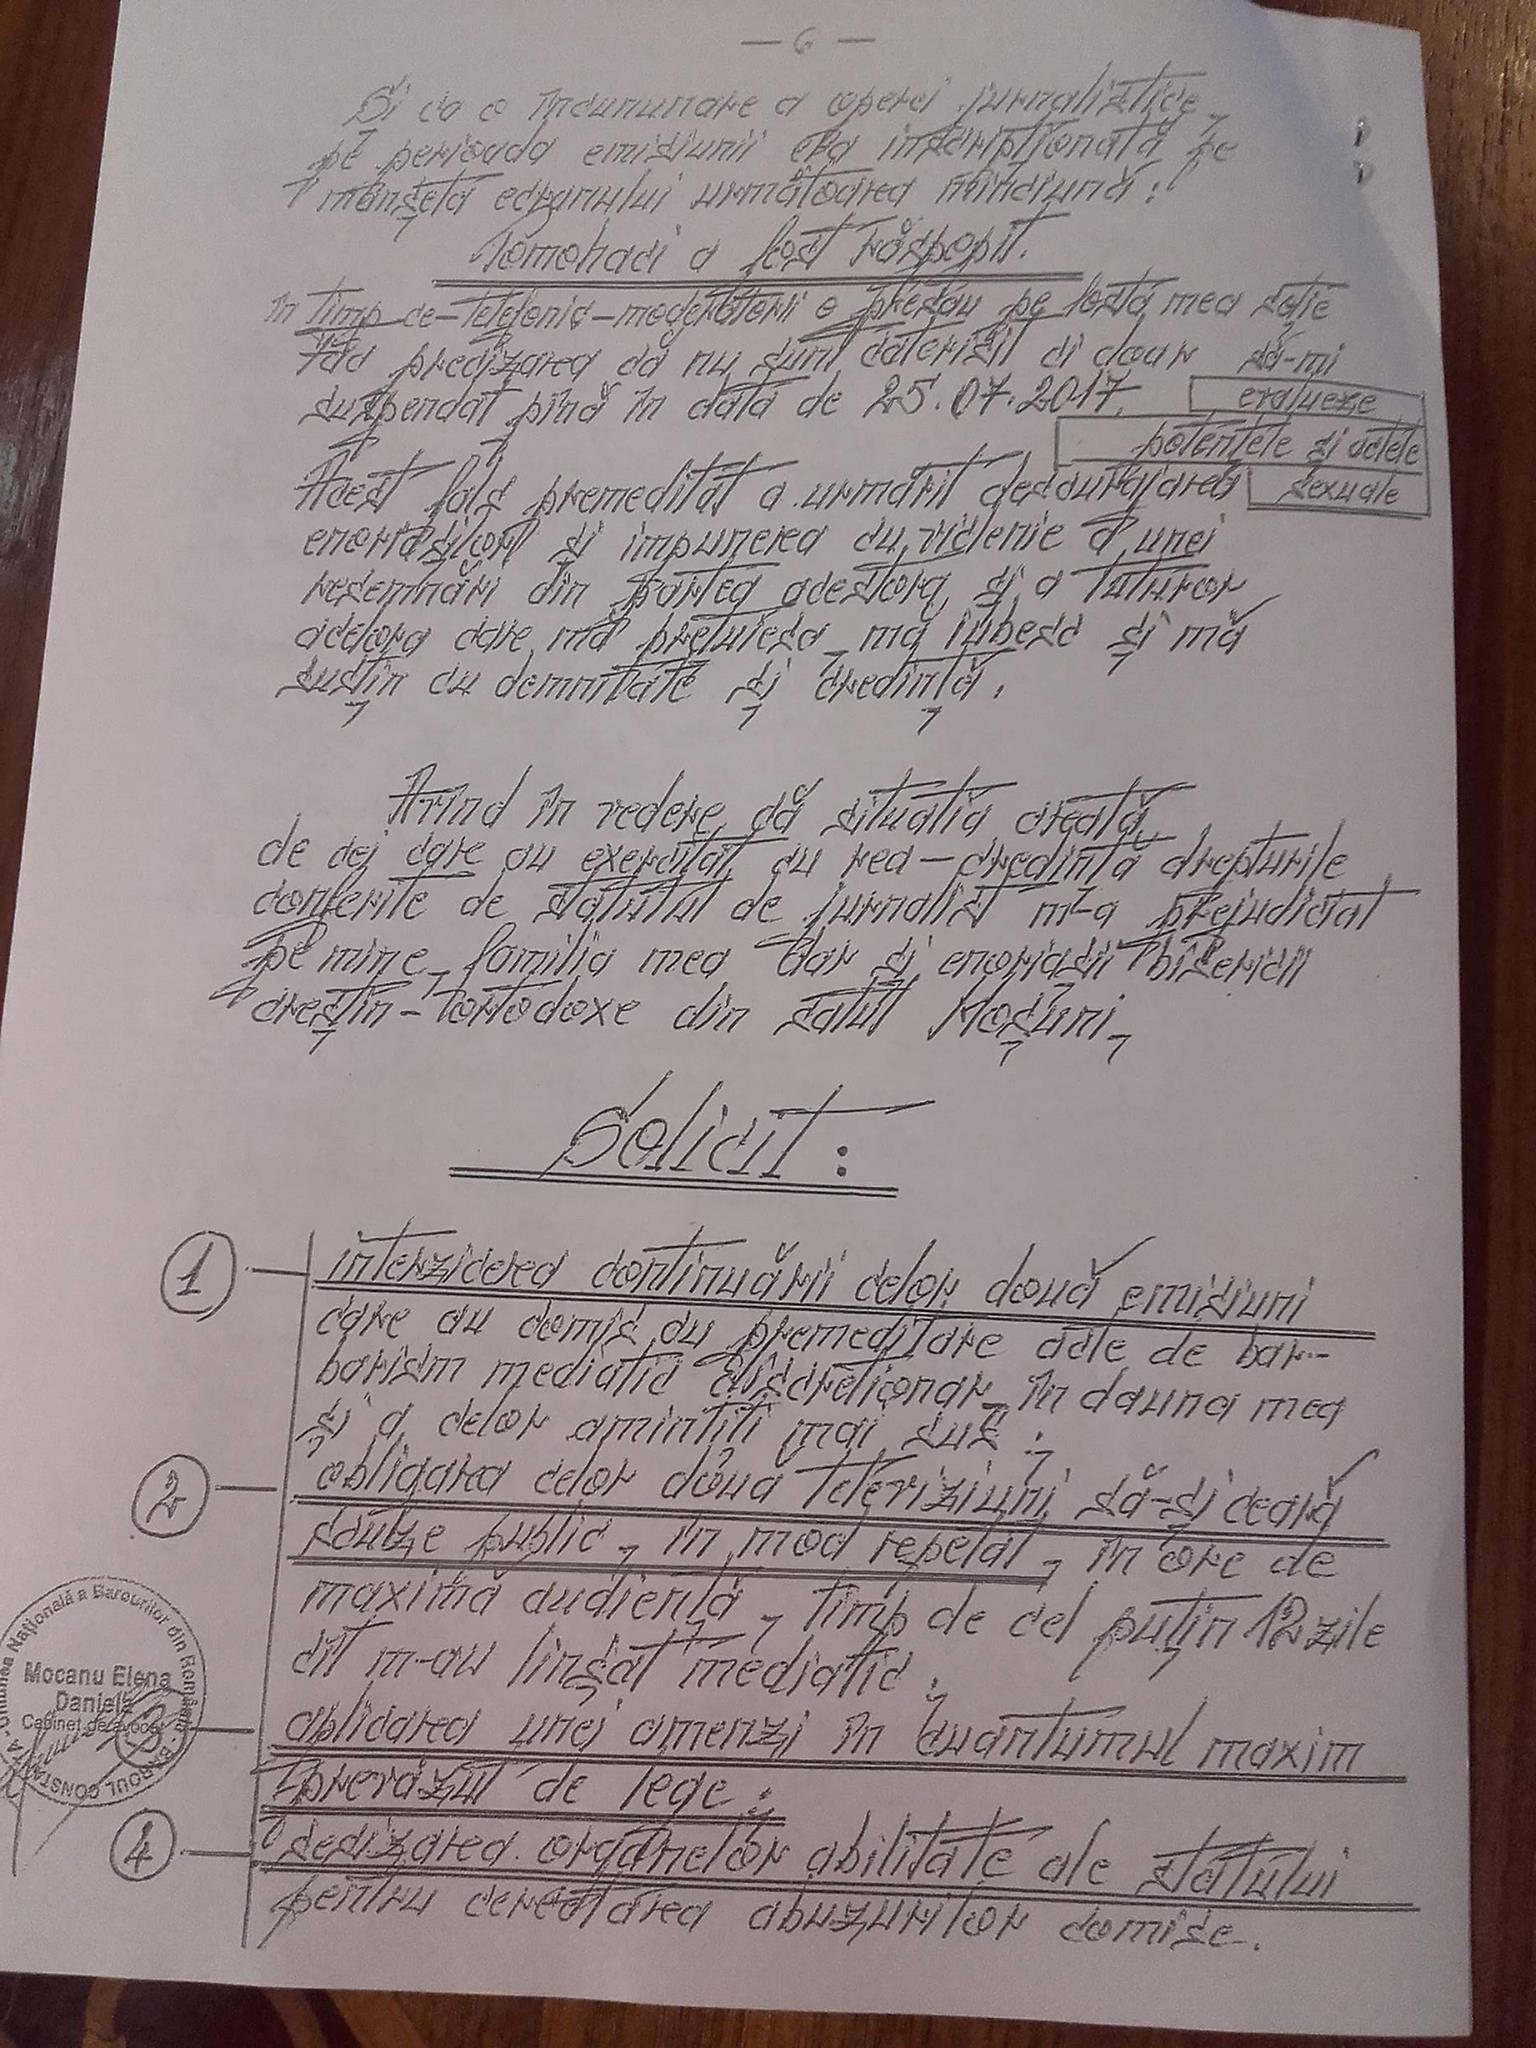 — 6 —
Și ca o încununare a operei jurnalistice,
pe perioada emisiunii era inscripționată pe
manșeta ecranului următoarea minciună:
Tomohaci a fost răspopit.
În timp ce-telefonic-moderatorii o presau pe fosta mea soție
Fac precizarea că nu sunt caterisit ci doar să-mi
suspendat pînă în data de 25.07.2017. evalueze
potențele și actele
Acest fals premeditat a urmărit descurajarea sexuale
enoriașilor și impunerea cu viclenie a unei
resemnări din partea acestora și a tuturor
acelora care mă prețuiesc, mă iubesc și mă
susțin cu demnitate și credință.
Avînd în vedere că situația creată
de cei care au exercitat cu rea-credință drepturile
conferite de statutul de jurnalist m-a prejudiciat
pe mine, familia mea dar și enoriașii bisericii
creștin-ortodoxe din satul Moșuni,
Solicit:
1 interzicerea continuării celor două emisiuni
care au comis cu premeditare acte de bar-
barism mediatic discreționar, în dauna mea
și a celor amintiți mai sus;
2 obligarea celor două televiziuni să-și ceară
scuze public, în mod repetat, în ore de
maximă audiență, timp de cel puțin 12 zile
cît m-au linșat mediatic.
3 aplicarea unei amenzi în cuantumul maxim
prevăzut de lege;
4 sesizarea organelor abilitate ale statului
pentru cercetarea abuzurilor comise.
Uniunea Națională a Barourilor din România
BAROUL CONSTANȚA
Mocanu Elena
Daniela
Cabinet de avocat